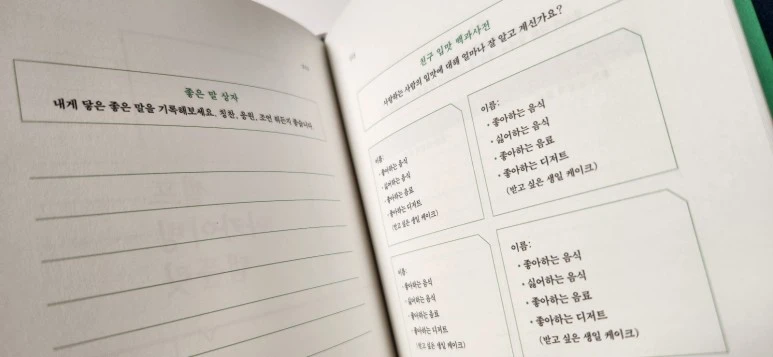 좋은 말 상자
내게 닿은 좋은 말을 기록해보세요. 칭찬, 응원, 조언 뭐든지 좋습니다.
친구 입맛 백과사전
사랑하는 사람의 입맛에 대해 얼마나 잘 알고 계신가요?
이름:
· 좋아하는 음식
· 싫어하는 음식
· 좋아하는 음료
· 좋아하는 디저트
(받고 싶은 생일 케이크)
이름:
· 좋아하는 음식
· 싫어하는 음식
· 좋아하는 음료
· 좋아하는 디저트
(받고 싶은 생일 케이크)
이름:
· 좋아하는 음식
· 싫어하는 음식
· 좋아하는 음료
· 좋아하는 디저트
(받고 싶은 생일 케이크)
이름:
· 좋아하는 음식
· 싫어하는 음식
· 좋아하는 음료
· 좋아하는 디저트
(받고 싶은 생일 케이크)